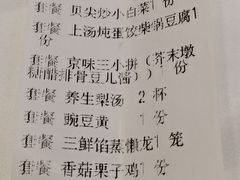 套餐 贝尖炒小白菜1
份
套餐 上汤炖蛋饺柴锅豆腐1
份
套餐 京味三小拼(芥末墩
糖醋排骨豆儿酱) 1 份
套餐 养生梨汤 2 杯
套餐 豌豆黄 1 份
套餐 三鲜馅蒸懒龙1 笼
套餐 香菇栗子鸡1 份